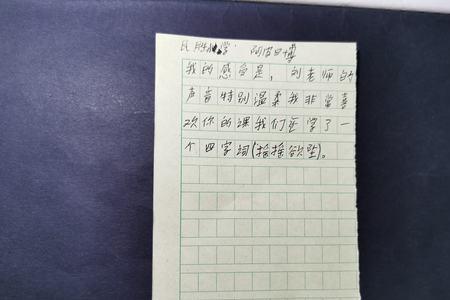 民胜小学 阿苦日博
我的感受是，刘老师的
声音特别温柔我非常喜
欢你的课我们还学了一
个四字词(摇摇欲坠)。